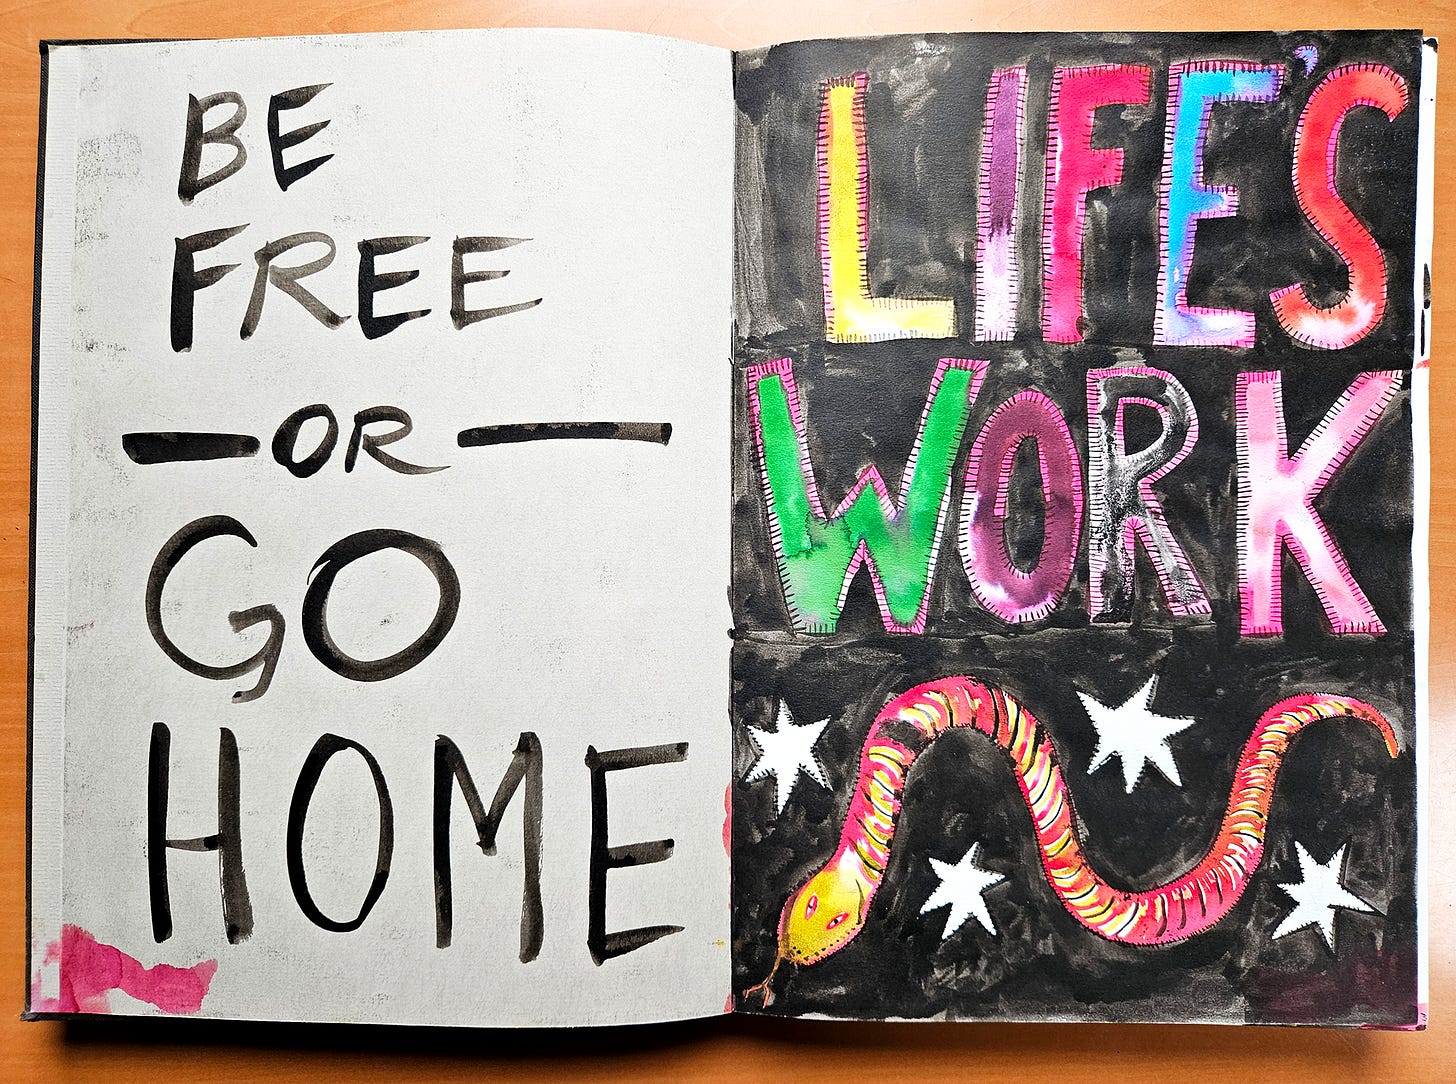 BE
FREE
— OR —
GO
HOME
LIFE'S
WORK